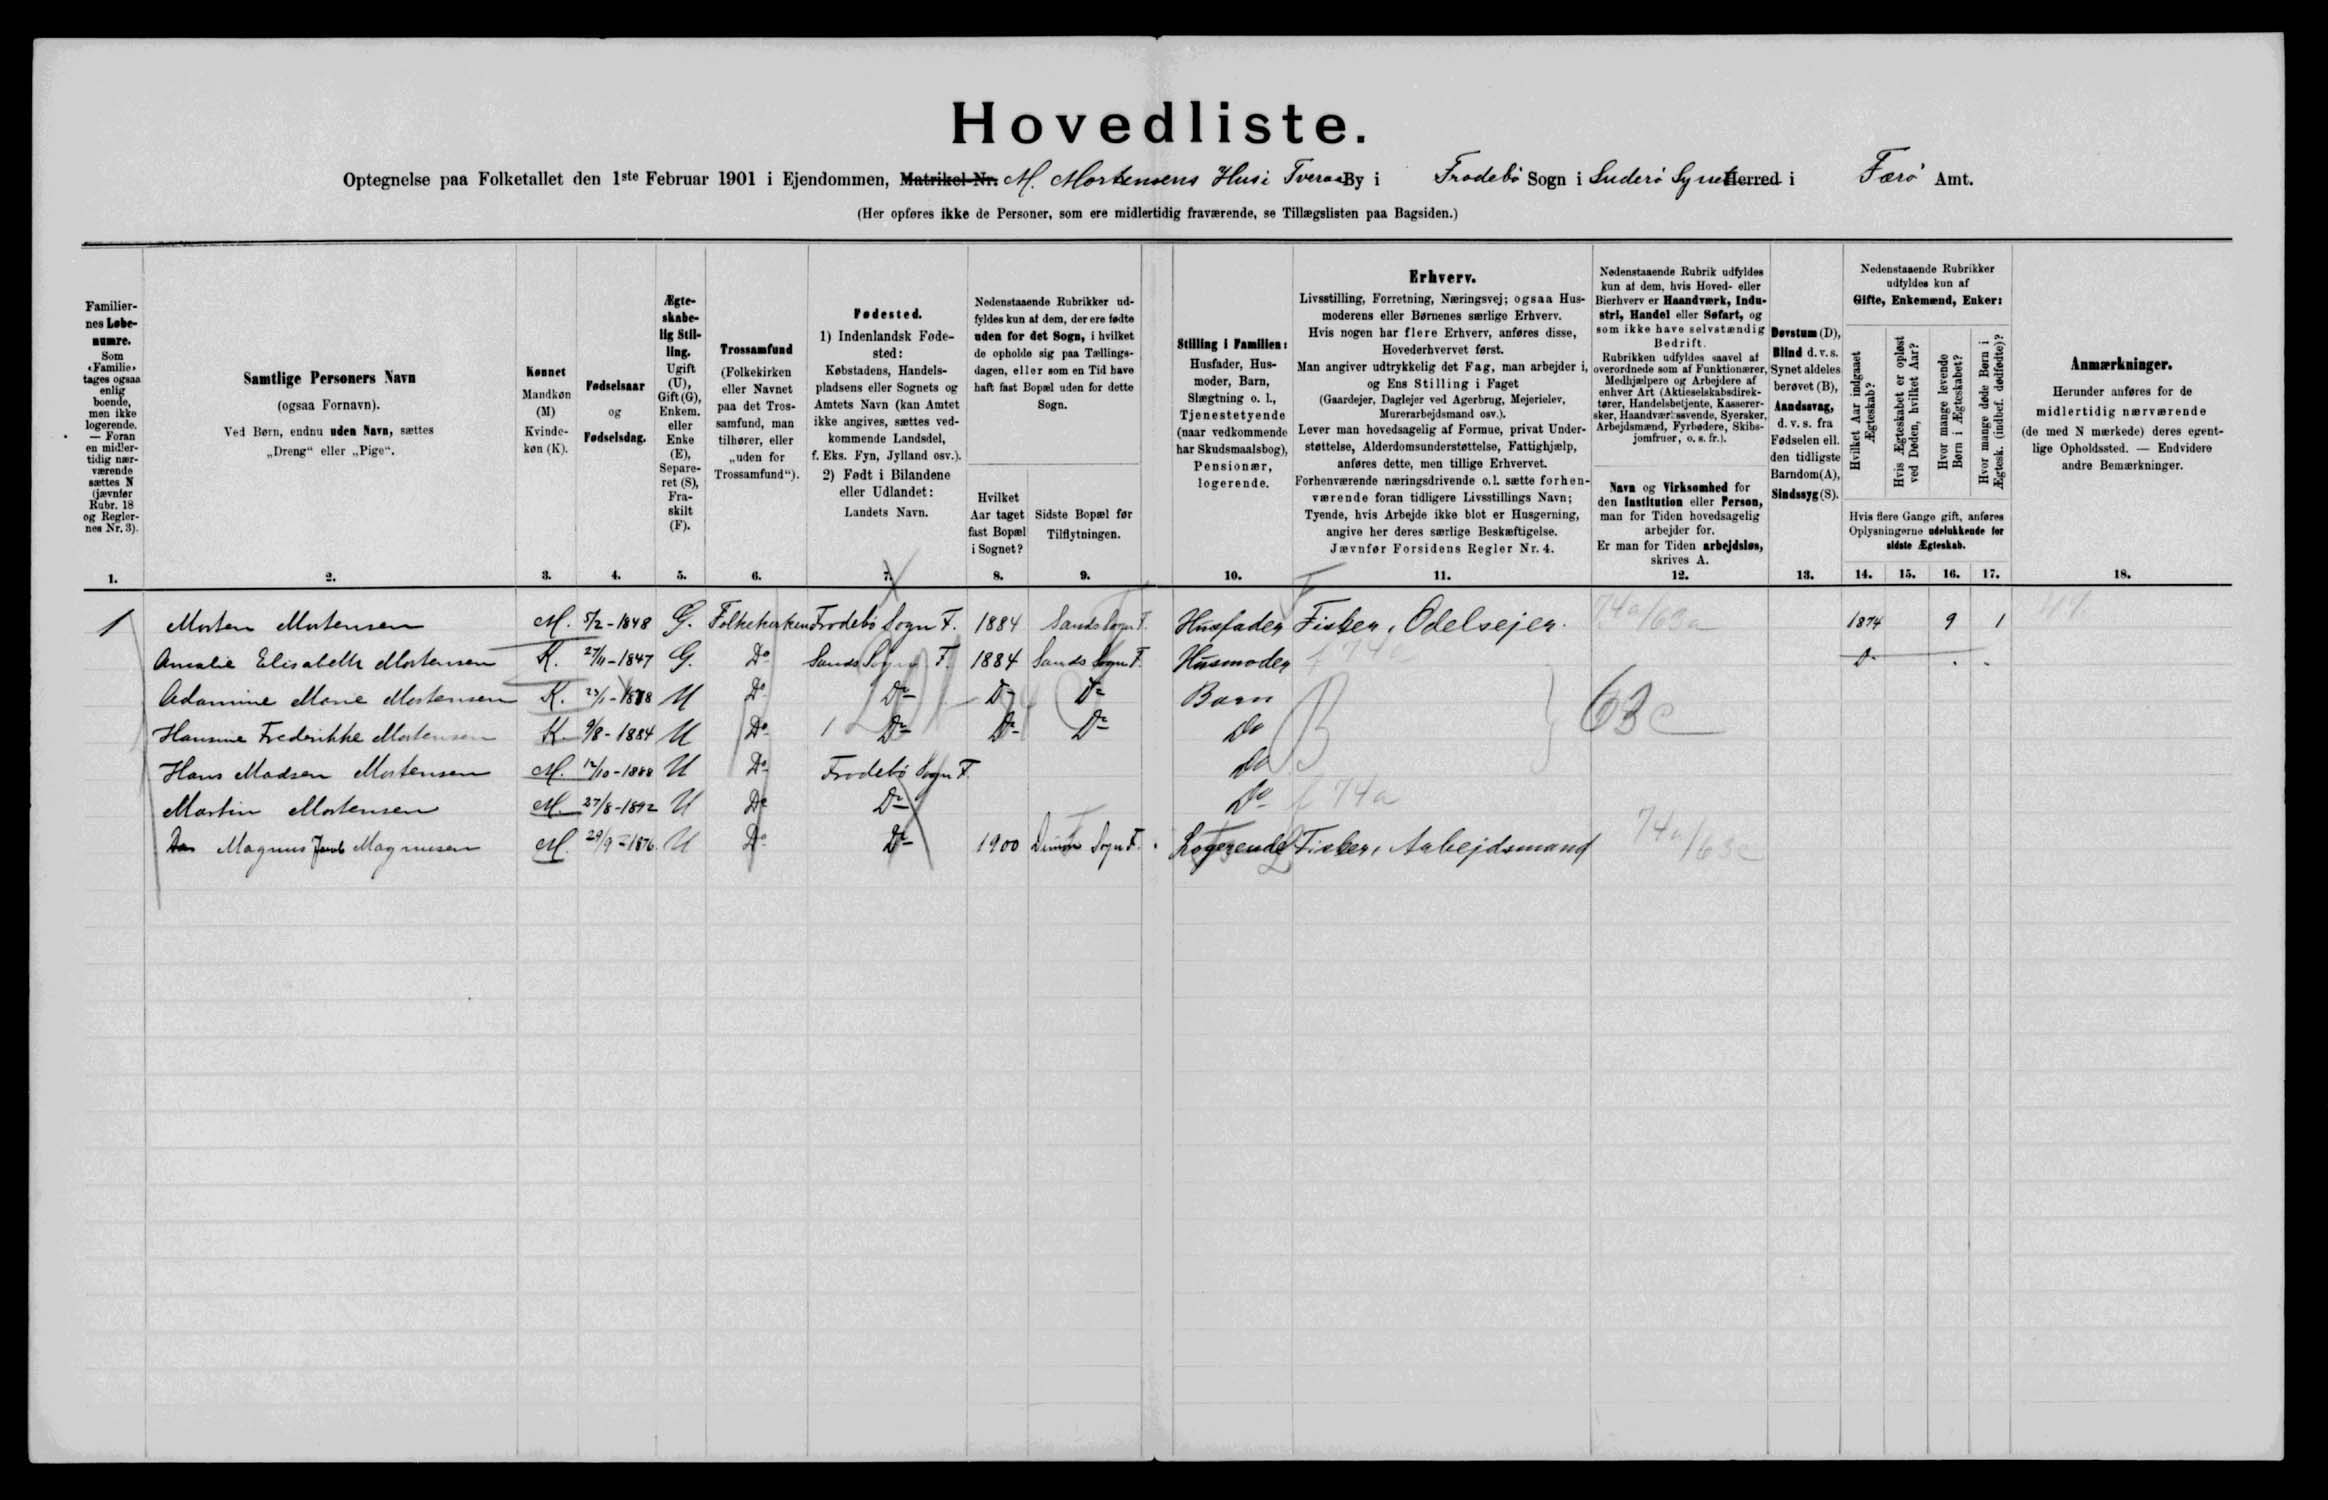 Hovedliste.
Optegnelse paa Folketallet den 1ste Februar 1901 i Ejendommen, Matrikel-Nr. M. Mortensens Hus i Tveraa By i Frodebö Sogn i Suderö Syssel Herred i Færö Amt.
(Her opføres ikke de Personer, som ere midlertidig fraværende, se Tillægslisten paa Bagsiden.)
Familiernes Løbenumre.
Som «Familie» tages ogsaa enlig boende, men ikke logerende. — Foran en midlertidig nærværende sættes N (jævnfør Rubr. 18 og Reglernes Nr. 3).
1.
Samtlige Personers Navn
(ogsaa Fornavn).
Ved Børn, endnu uden Navn, sættes
„Dreng“ eller „Pige“.
2.
Kønnet
Mandkøn (M)
Kvindekøn (K).
3.
Fødselsaar
og
Fødselsdag.
4.
Ægteskabelig Stilling.
Ugift (U), Gift (G), Enkem. eller Enke (E), Separeret (S), Fraskilt (F).
5.
Trossamfund
(Folkekirken eller Navnet paa det Trossamfund, man tilhører, eller „uden for Trossamfund“).
6.
Fødested.
1) Indenlandsk Fødested:
Købstadens, Handelspladsens eller Sognets og Amtets Navn (kan Amtet ikke angives, sættes vedkommende Landsdel, f. Eks. Fyn, Jylland osv.).
2) Født i Bilandene eller Udlandet:
Landets Navn.
7.
Nedenstaaende Rubrikker udfyldes kun af dem, der ere fødte uden for det Sogn, i hvilket de opholde sig paa Tællingsdagen, eller som en Tid have haft fast Bopæl uden for dette Sogn.
Hvilket Aar taget fast Bopæl i Sognet?
8.
Sidste Bopæl før Tilflytningen.
9.
Stilling i Familien:
Husfader, Husmoder, Barn, Slægtning o. l., Tjenestetyende (naar vedkommende har Skudsmaalsbog), Pensionær, logerende.
10.
Erhverv.
Livsstilling, Forretning, Næringsvej; ogsaa Husmoderens eller Børnenes særlige Erhverv.
Hvis nogen har flere Erhverv, anføres disse, Hovederhvervet først.
Man angiver udtrykkelig det Fag, man arbejder i, og Ens Stilling i Faget
(Gaardejer, Daglejer ved Agerbrug, Mejerielev, Murerarbejdsmand osv.).
Lever man hovedsagelig af Formue, privat Understøttelse, Alderdomsunderstøttelse, Fattighjælp, anføres dette, men tillige Erhvervet.
Forhenværende næringsdrivende o. l. sætte forhenværende foran tidligere Livsstillings Navn;
Tyende, hvis Arbejde ikke blot er Husgerning, angive her deres særlige Beskæftigelse.
Jævnfør Forsidens Regler Nr. 4.
11.
Nedenstaaende Rubrik udfyldes kun af dem, hvis Hoved- eller Bierhverv er Haandværk, Industri, Handel eller Søfart, og som ikke have selvstændig Bedrift.
Rubrikken udfyldes saavel af overordnede som af Funktionærer, Medhjælpere og Arbejdere af enhver Art (Aktieselskabsdirektører, Handelsbetjente, Kasserersker, Haandværkssvende, Syersker, Arbejdsmænd, Fyrbødere, Skibsjomfruer, o. s. fr.).
Navn og Virksomhed for den Institution eller Person, man for Tiden hovedsagelig arbejder for.
Er man for Tiden arbejdsløs, skrives A.
12.
Døvstum (D), Blind d. v. s. Synet aldeles berøvet (B), Aandssvag, d. v. s. fra Fødselen ell. den tidligste Barndom (A), Sindssyg (S).
13.
Nedenstaaende Rubrikker udfyldes kun af
Gifte, Enkemænd, Enker:
Hvilket Aar indgaaet Ægteskab?
Hvis Ægteskabet er opløst ved Døden, hvilket Aar?
Hvor mange levende Børn i Ægteskabet?
Hvor mange døde Børn i Ægtesk. (indbef. dødfødte)?
Hvis flere Gange gift, anføres Oplysningerne udelukkende for sidste Ægteskab.
14. 15. 16. 17.
Anmærkninger.
Herunder anføres for de midlertidig nærværende (de med N mærkede) deres egentlige Opholdssted. — Endvidere andre Bemærkninger.
18.
1 Morten Mortensen M. 5/2-1848 G. Folkekirken Frodebö Sogn F. 1884 Sands Sogn F. Husfader Fisker, Odelsejer. 74a/63a 1874 9 1
Amalie Elisabeth Mortensen K. 27/11-1847 G. Do Sands Sogn F. 1884 Sands Sogn F. Husmoder f 74a Do
Adamine Marie Mortensen K. 23/1-1878 U Do Do Do Do Barn
Hansine Frederikke Mortensen K. 9/8-1884 U Do Do Do Do Do B 63c
Hans Madsen Mortensen M. 12/10-1888 U Do Frodebö Sogn F. Do
Martin Mortensen M. 27/8-1892 U Do Do Do f 74a
Magnus Jacob Magnusen M. 29/9-1876. U Do Do 1900 Dimon Sogn F. Logerende Fisker, Arbejdsmand 74a/63c